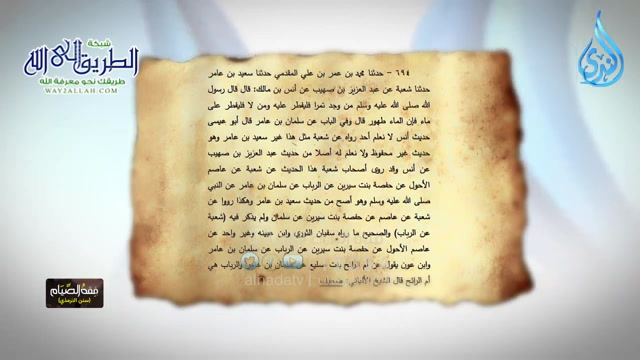 شبكة
الطريق إلى الله
طريقك نحو معرفة الله
WAY2ALLAH.COM
الندى
٦٩٤ - حدثنا محمد بن عمر بن علي المقدمي حدثنا سعيد بن عامر
حدثنا شعبة عن عبد العزيز بن صهيب عن أنس بن مالك: قال قال رسول
الله صلى الله عليه وسلم من وجد تمرا فليفطر عليه ومن لا فليفطر على
ماء فإن الماء طهور قال وفي الباب عن سلمان بن عامر قال أبو عيسى
حديث أنس لا نعلم أحد رواه عن شعبة مثل هذا غير سعيد بن عامر وهو
حديث غير محفوظ ولا نعلم له أصلا من حديث عبد العزيز بن صهيب
عن أنس وقد روى أصحاب شعبة هذا الحديث عن شعبة عن عاصم
الأحول عن حفصة بنت سيرين عن الرباب عن سلمان بن عامر عن النبي
صلى الله عليه وسلم وهو أصح من حديث سعيد بن عامر وهكذا رووا عن
شعبة عن عاصم عن حفصة بنت سيرين عن سلمان ولم يذكر فيه (شعبة
عن الرباب) والصحيح ما رواه سفيان الثوري وابن عيينه وغير واحد عن
عاصم الأحول عن حفصة بنت سيرين عن الرباب عن سلمان بن عامر
وابن عون يقول عن أم الرائح بنت صليع عن سلمان بن عامر والرباب هي
أم الرائح قال الشيخ الألباني ضعيف
alnadatv
فقه الصيام
(سنن الترمذي)